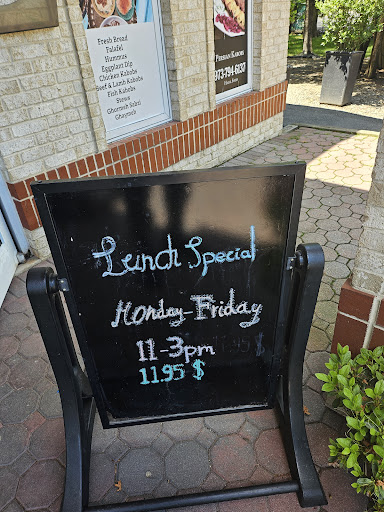 Fresh Bread
Falafel
Hummus
Eggplant Dip
Chicken Kabobs
Beef & Lamb Kabobs
Fish Kabobs
Stews
Ghormeh Sabzi
Ghaymeh
Persian Kabobs
973-794-6130
Lunch Special
Monday-Friday
11-3pm
11.95 $